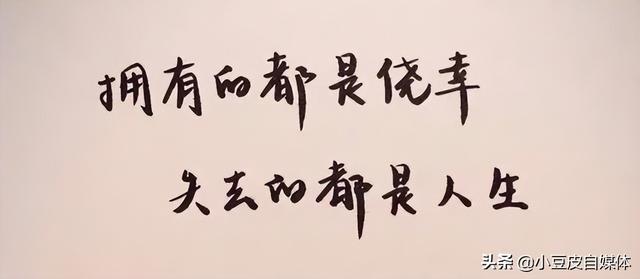 拥有的都是侥幸
失去的都是人生
头条 @小豆皮自媒体